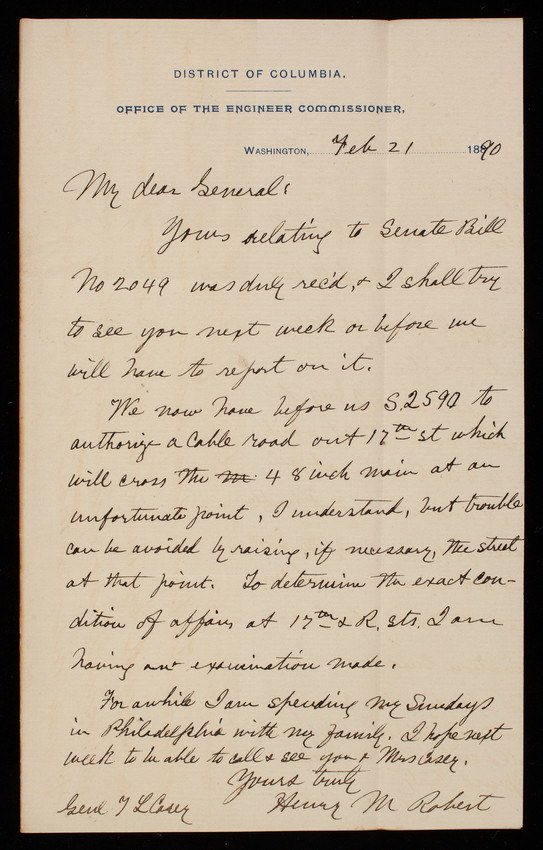 DISTRICT OF COLUMBIA.
OFFICE OF THE ENGINEER COMMISSIONER,
WASHINGTON, Feb 21 1890
My dear General:
Yours relating to Senate Bill
No 2049 was duly rec'd, & I shall try
to see you next week or before we
will have to report on it.
We now have before us S. 2590 to
authorize a Cable road out 17th st which
will cross the m 48 inch main at an
unfortunate point, I understand, but trouble
can be avoided by raising, if necessary, the street
at that point. To determine the exact con-
dition of affairs at 17th & R. sts. I am
having an examination made.
For awhile I am spending my Sundays
in Philadelphia with my family. I hope next
week to be able to call & see you & Mrs Casey.
Yours truly
Genl T L Casey Henry M Robert